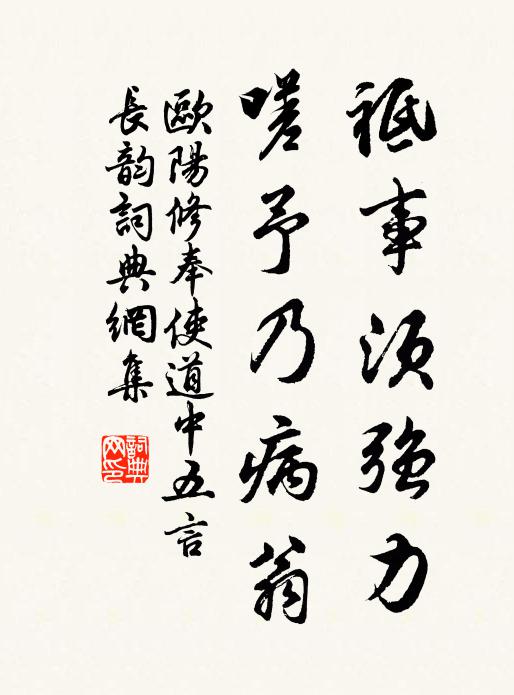 祗事須強力
嗟予乃病翁
歐陽修奉使道中五言
長韵詞典網集
詞典網印